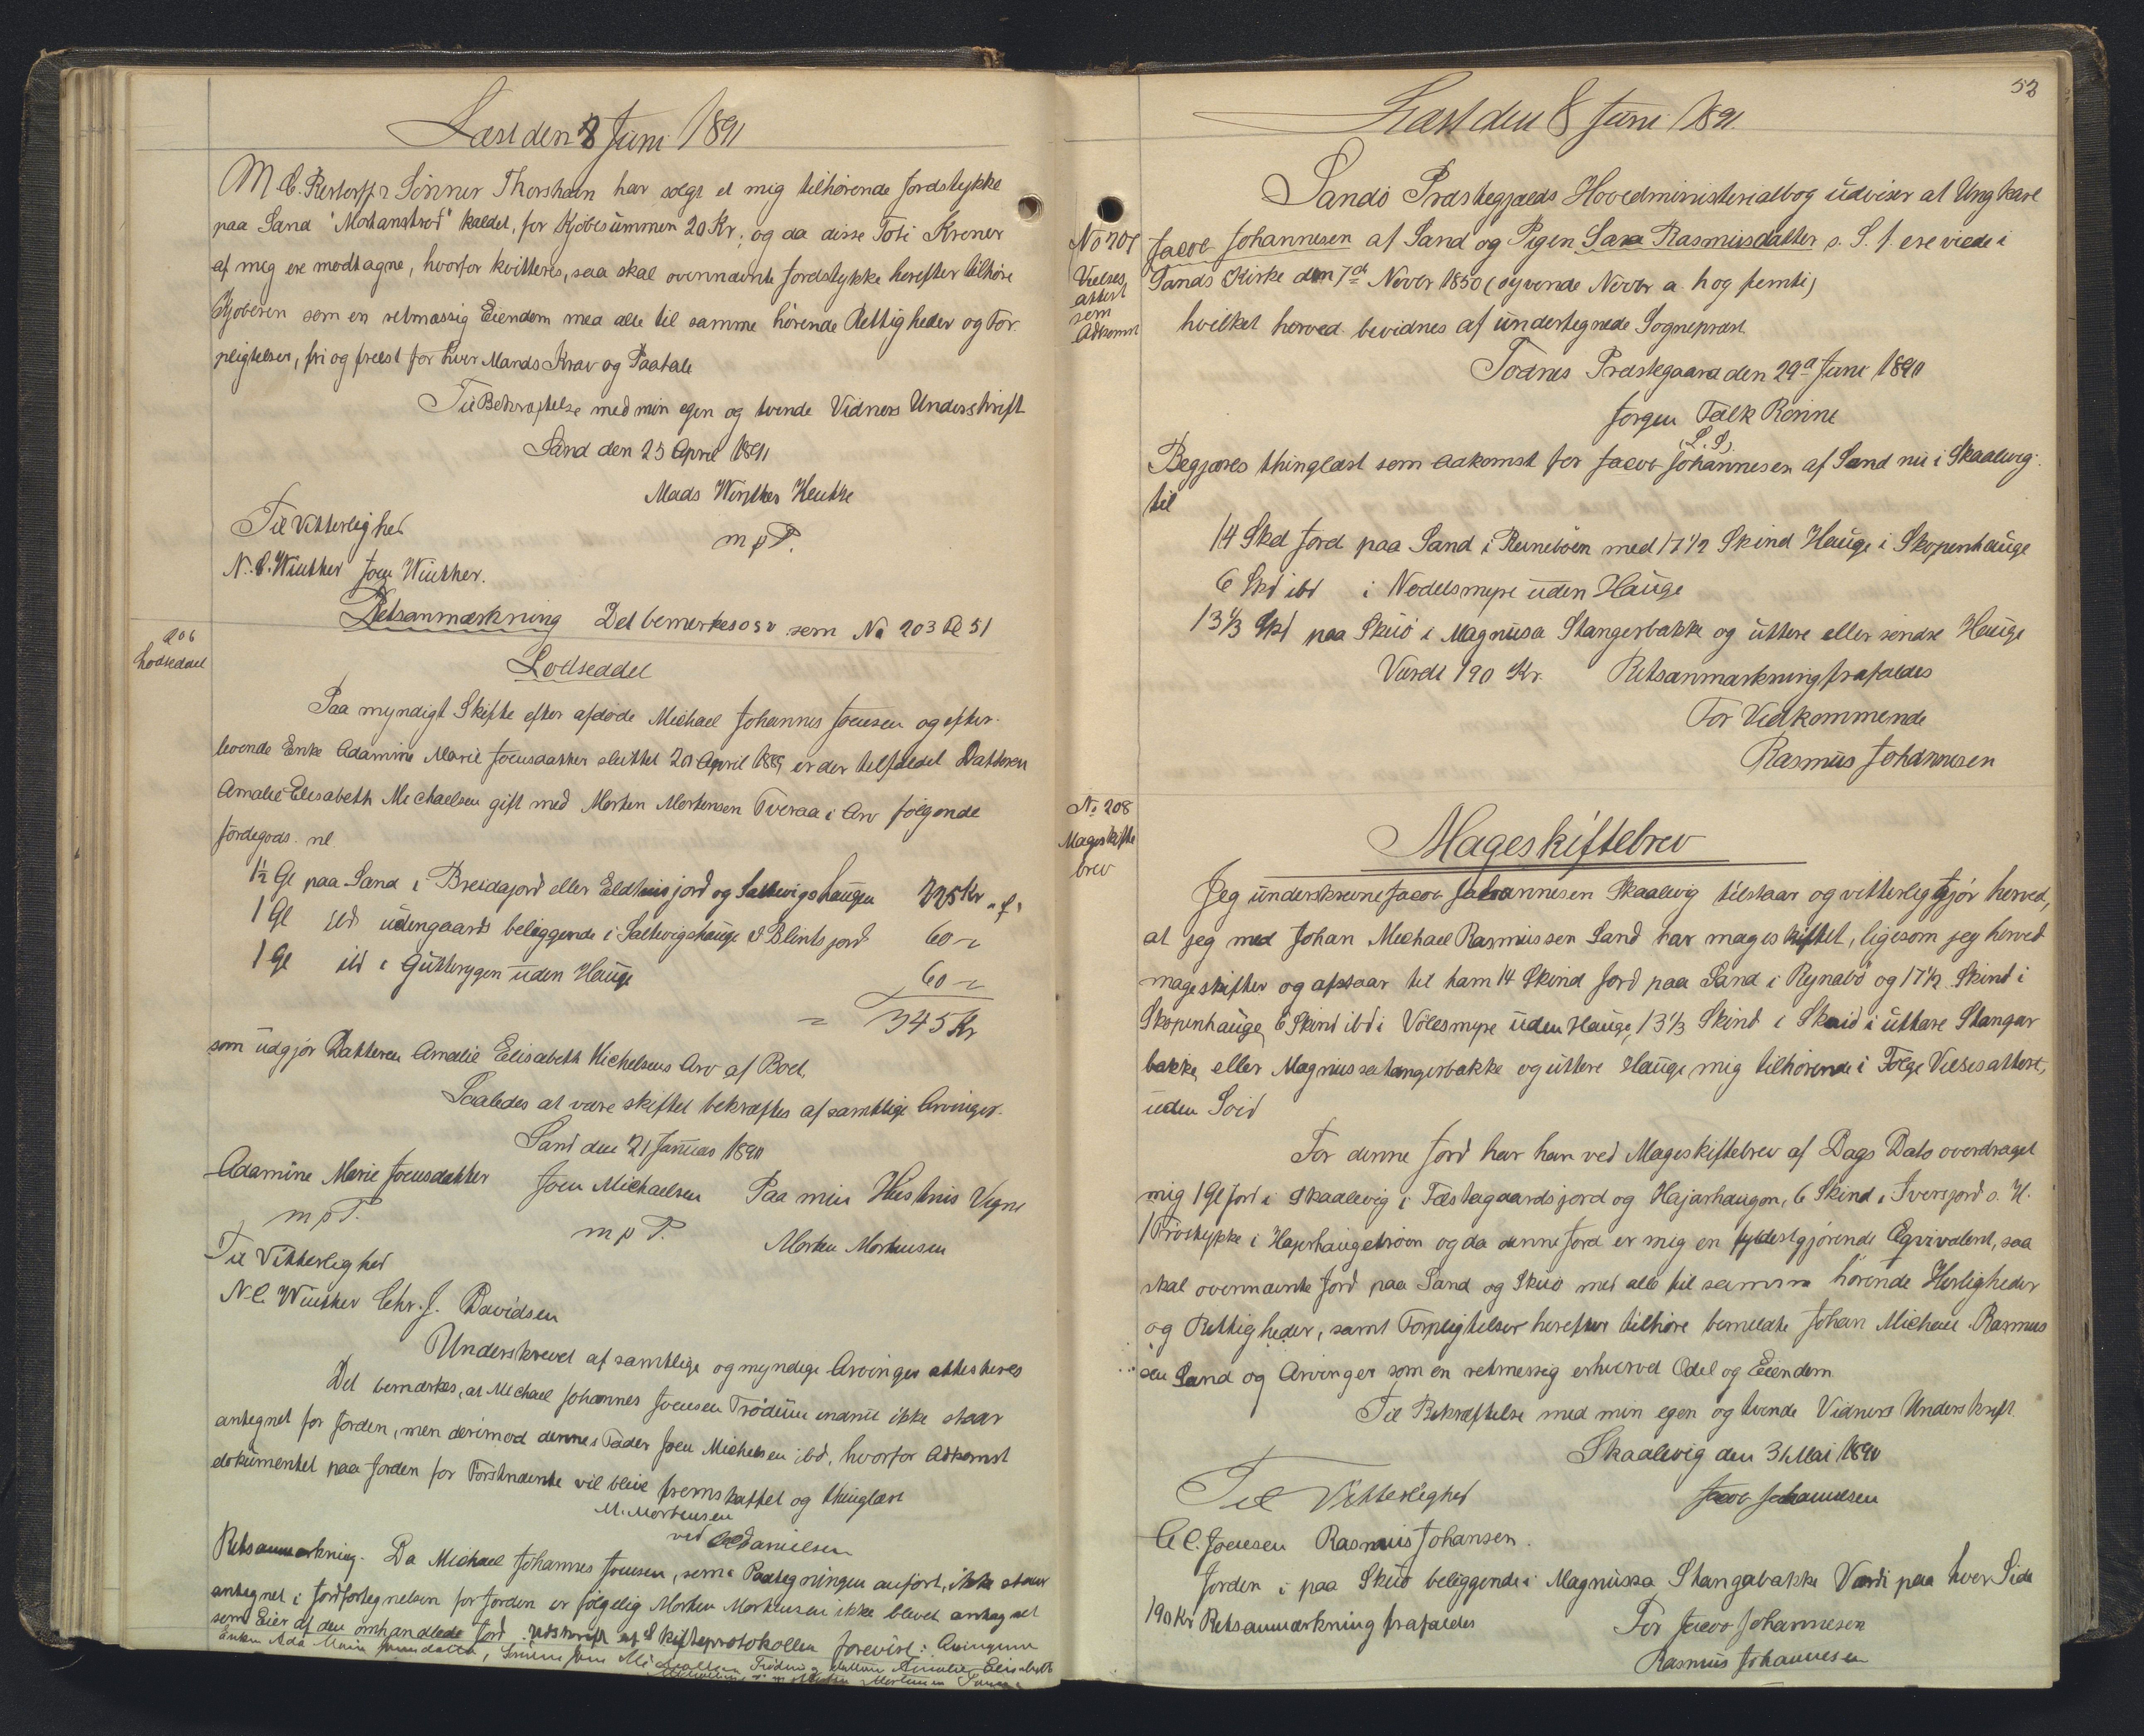 Læst den 8 Juni 1891
M C. Restorff & Sönner Thorshavn har solgt et mig tilhörende Jordstykke
paa Sand "Mortanstrod" kaldet, for Kjöbesummen 20 Kr; og da disse Toti Kroner
af mig ere modtagne, hvorfor kvitteres, saa skal ovennævnte Jordstykke herefter tilhöre
Kjöberen som en retmæssig Eiendom med alle til samme hörende Rettigheder og For-
pligtelser, fri og frelst for hver Mands Krav og Paatale
Til Bekræftelse med min egen og tvende Vidners Underskrift
Sand den 25 April 1891
Mads Winther
m p P.
Til Vitterlighed
N. C. Winther Joen Winther.
Retsanmærkning Det bemærkes osv som No 203 Pe 51
206
Lodseddel
Lodseddel
Paa myndigt Skifte efter afdöde Michael Johannes Joensen og efter-
levende Enke Adamine Marie Joensdatter sluttet 20 April 1889 er der tilfaldet Datteren
Amalie Elisabeth Michaelsen gift med Morten Mortensen Tveraa i Arv fölgende
Jordegods. nl
1½ Gl paa Sand i Breidajord eller Eldhusjord og Saltvigshaugen 225 Kr "f"
1 Gl ibd udengaards beliggende i Saltvigshauge & Blintsjord 60 -
1 Gl ibd i Gutterygen uden Hauge 60 -
= 345 Kr
som udgjör Datteren Amalie Elisabeth Michelsens Arv af Boet.
Saaledes at være skiftet bekræftes af samtlige Arvinger.
Sand den 21 Januar 1890
Adamine Marie Joensdatter Joen Michaelsen Paa min Hustrus Vegne
m p P. m p P. Morten Mortensen
Til Vitterlighed
N. C. Winther Chr. J. Davidsen
Underskrevet af samtlige og myndige Arvinger attesteres
Det bemærkes, at Michael Johannes Joensen Trödum endnu ikke staar
antegnet for Jorden, men derimod dennes Fader Joen Michelsen ibd, hvorfor Adkomst
dokumentet paa Jorden for Förstnævnte vil blive fremskaffet og thinglæst
M. Mortensen
ved Danielsen
Retsanmærkning. Da Michael Johannes Joensen, som i Paategningen anfört, ikke staar
antegnet i Jordfortegnelsen for Jorden er fölgelig Morten Mortensen ikke blevet antegnet
som Eier af den omhandlede Jord. Udskrift af Skifteprotokollen forevist: Arvingerne
Enken Ada Marie Joensdatter, Sönnen Joen Michaelsen Trödum og Datteren Amalie Elisabeth
Morten Mortensen
52
Læst den 8 Juni 1891.
Sandö Præstegjælds Hovedministerialbog udviser at Ungkarl
No 207
Vielses
attest
som
Adkomst
Jacob Johannesen af Sand og Pigen Sara Rasmusdatter s. S. f. ere viede i
Sands Kirke den 7de Novbr 1850 (syvende Novbr a. h og femti)
hvilket herved bevidnes af undertegnede Sognepræst
Todnes Præstegaard den 29d Juni 1890
Jörgen Falk Rönne
(L. S.)
Begjæres thinglæst som Adkomst for Jacob Johannesen af Sand nu i Skaalevig.
til
14 Skd Jord paa Sand i Reineböen med 17½ Skind Hauge i Skopenhauge
6 Skd ibd i Nodelsmyre uden Hauge
13⅓ Skd paa Skuö i Magnusa Stangerbakke og uttere eller söndre Hauge
Værdi 190 Kr. Retsanmærkning frafaldes
For Vedkommende
Rasmus Johannesen
No 208
Mageskifte
brev
Mageskiftebrev
Jeg underskrevne Jacob Johannesen Skaalevig tilstaar og vitterliggjör herved,
at jeg med Johan Michael Rasmussen Sand har mageskiftet, ligesom jeg herved
mageskifter og afstaar til ham 14 Skind Jord paa Sand i Reynabö og 17½ Skind i
Skopenhauge, 6 Skind ibd i Völesmyre uden Hauge, 13⅓ Skind i Skuö i uttare Stangar
bakke, eller Magnussastangerbakke og uttere Hauge mig tilhörende i Fölge Vielsesattest,
uden Soid
For denne Jord har han ved Mageskiftebrev af Dags Dato overdraget
mig 1 Gl Jord i Skaalevig i Fæstegaardsjord og Hajarhaugen, 6 Skind i Iversjord o. H.
1 Tröstykke i Hajerhaugetröen og da denne Jord er mig en fyldestgjörende Eqvivalent, saa
skal ovennævnte Jord paa Sand og Skuö med alle til samme hörende Herligheder
og Rettigheder, samt Forpligtelser herefter tilhöre bemeldte Johan Michael Rasmus
sen Sand og Arvinger som en retmessig erhvervet Odel og Eiendom
Til Bekræftelse med min egen og tvende Vidners Underskrift.
Skaalevig den 31 Mai 1890
Til Vitterlighed Jacob Johannesen
C. C. Joensen Rasmus Johansen.
Jorden i paa Skuö beliggende i Magnussa Stangabakke Værdi paa hver Side
190 Kr Retsanmærkning frafaldes For Jacob Johannesen
Rasmus Johannesen